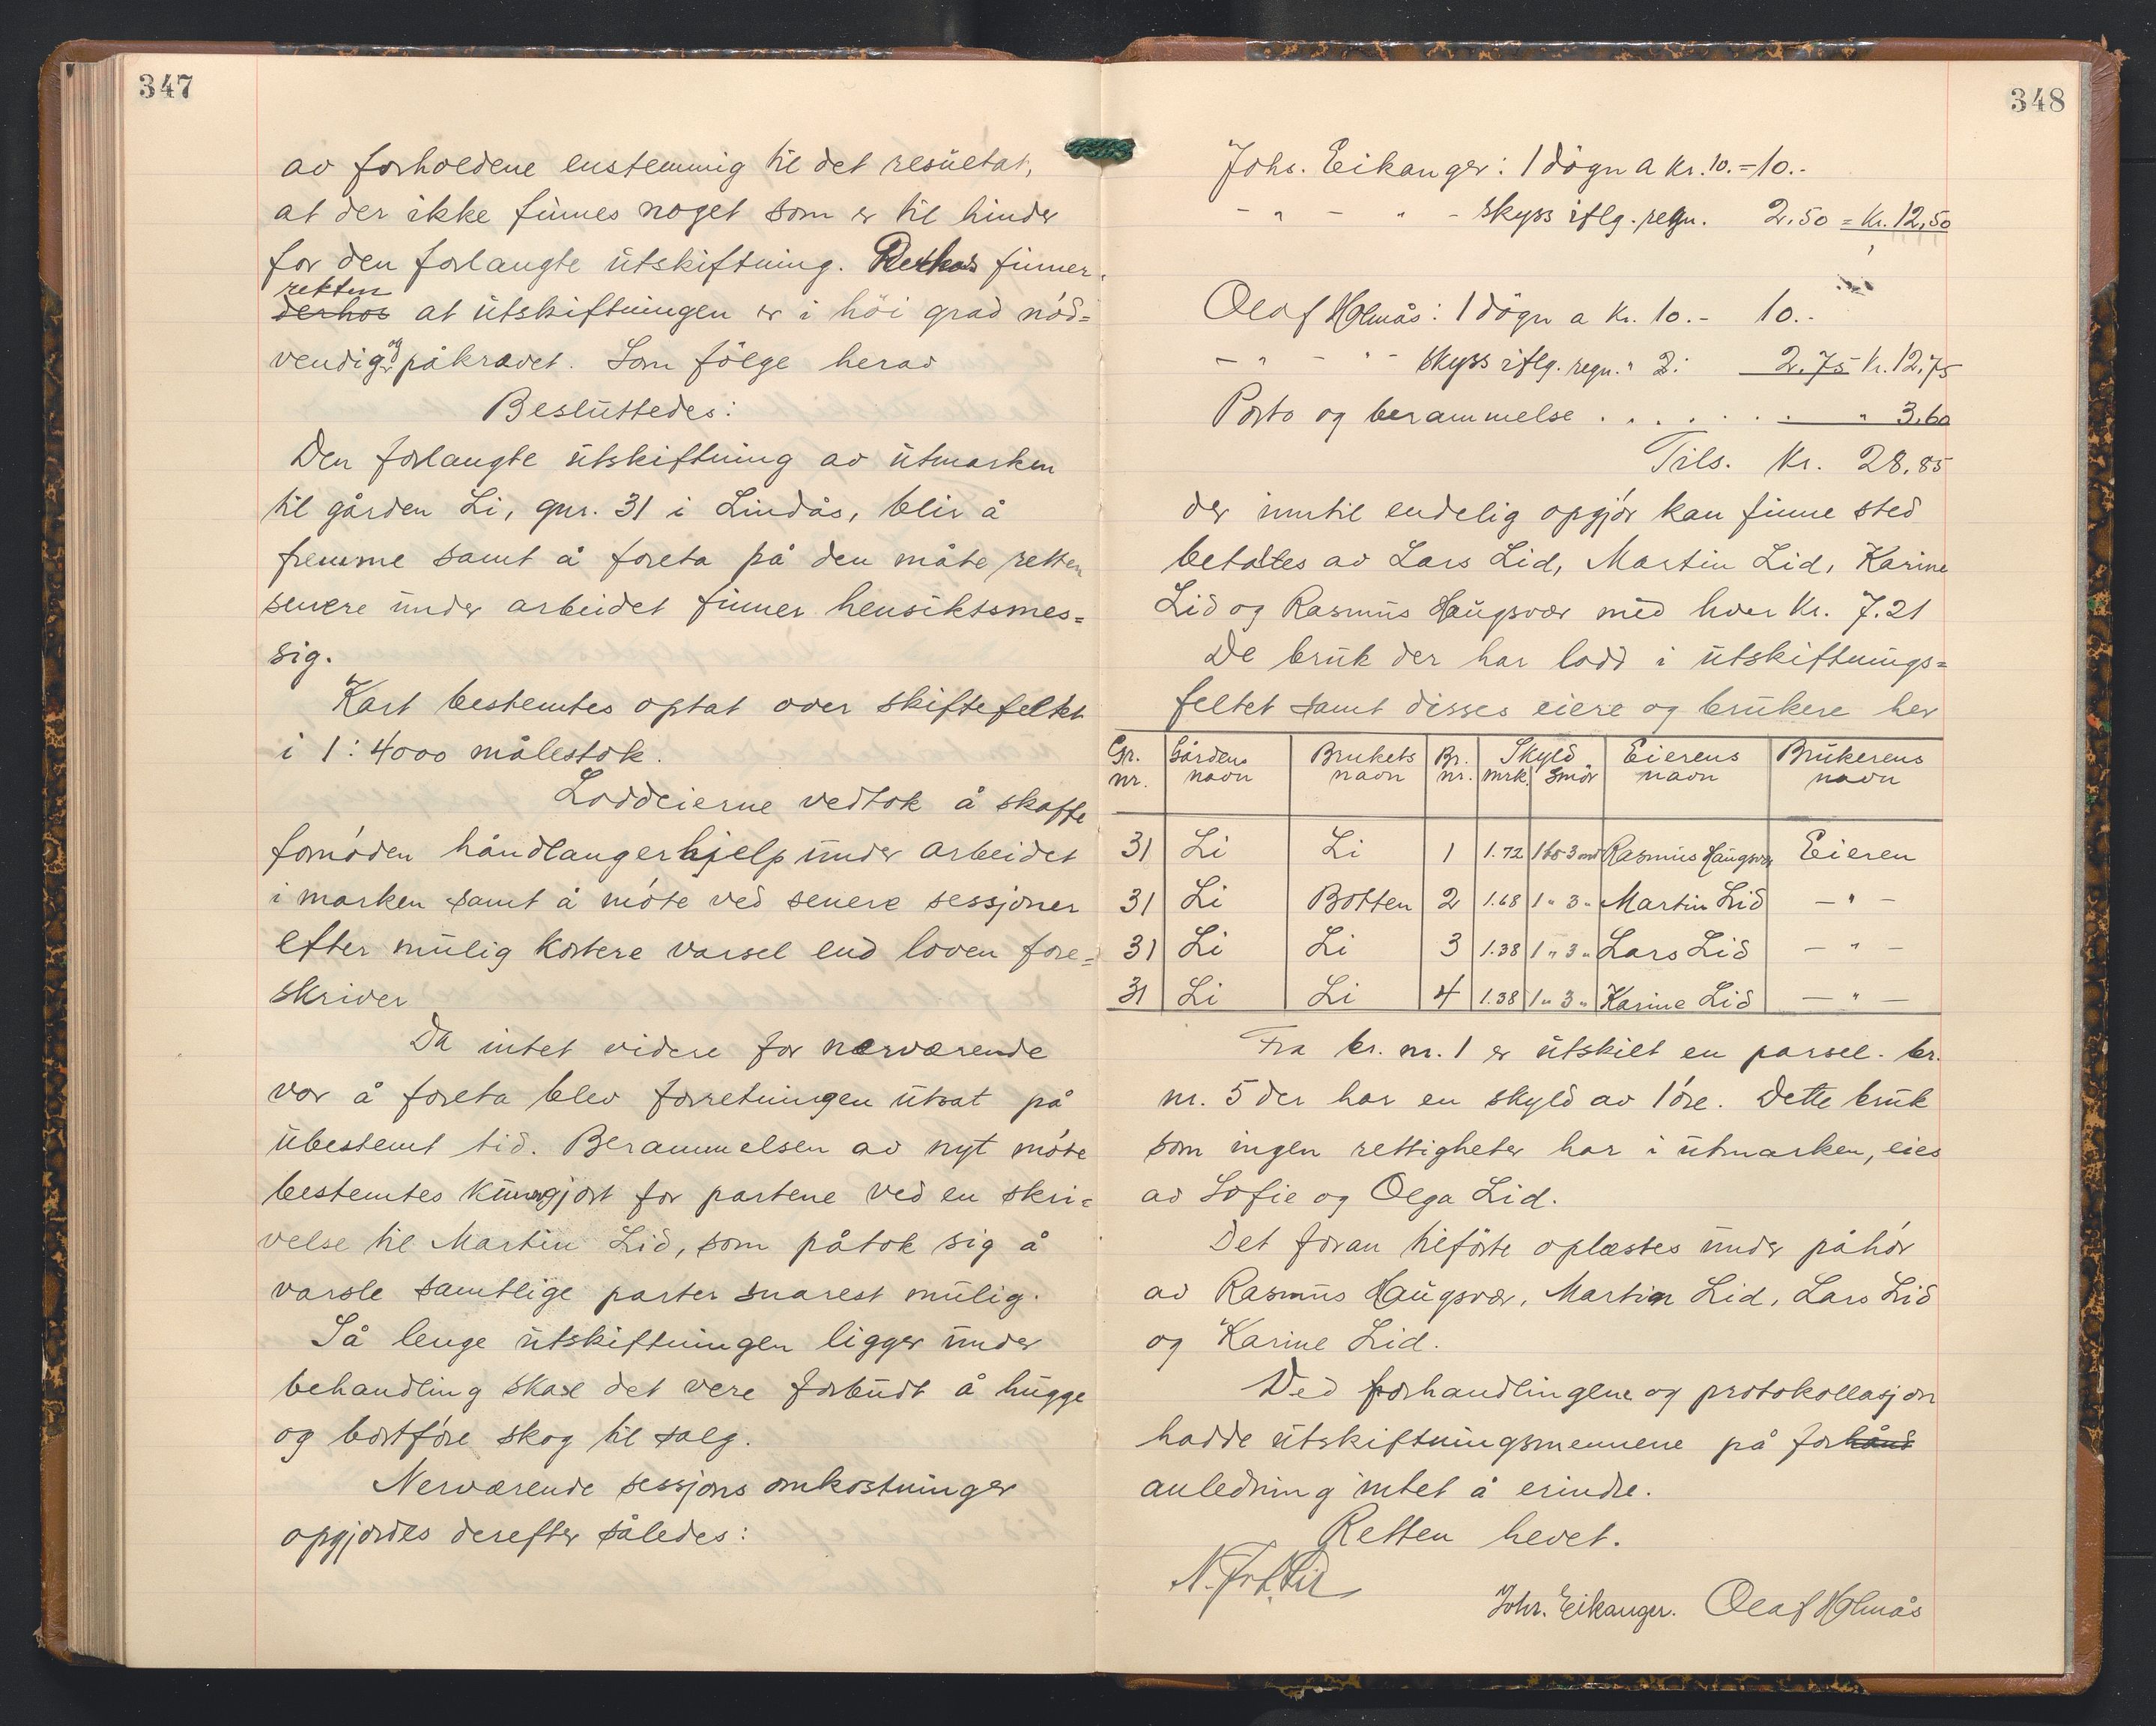 347
av forholdene enstemmig til det resultat,
at der ikke finnes noget som er til hinder
for den forlangte utskiftning. Derhos finner
retten
derhos at utskiftningen er i höi grad nöd=
vendig og påkrævet. Som fölge herav
Besluttedes:
Den forlangte utskiftning av utmarken
til gården Li, gnr. 31 i Lindås, blir å
fremme samt å foreta på den måte retten
senere under arbeidet finner hensiktsmes=
sig.
Kart bestemtes optat over skiftefeltet
i 1:4000 målestok.
Loddeierne vedtok å skaffe
fornöden håndlangerhjelp under arbeidet
i marken samt å möte ved senere sessjoner
efter mulig kortere varsel end loven fore=
skriver
Da intet videre for nærværende
var å foreta blev forretningen utsat på
ubestemt tid. Berammelsen av nyt möte
bestemtes kunngjort for partene ved en skri=
velse til Martin Lid, som påtok sig å
varsle samtlige parter snarest mulig.
Så lenge utskiftningen ligger under
behandling skal det vere forbudt å hugge
og bortföre skog til salg.
Nerværende sessjons omkostninger
opgjordes derefter således:
348
Johs. Eikanger: 1 dögn a kr. 10.- = 10.-
- " - " - skyss iflg. regn. 2,50 = Kr. 12,50
Olaf Holmås: 1 dögn a kr. 10.- 10.-
- " - " - skyss iflg. regn. " 2: 2.75 Kr. 12,75
Porto og berammelse . . . . . . " 3,60
Tils. Kr. 28,85
der inntil endelig opgjör kan finne sted
betaltes av Lars Lid, Martin Lid, Karine
Lid og Rasmus Haugsvær med hver Kr. 7.21
De bruk der har lodd i utskiftnings=
feltet samt disses eiere og brukere her
Gr. nr. | Gårdens navn | Brukets navn | Br. nr. | Skyld mrk. Smör | Eierens navn | Brukerens navn
31 Li Li 1 1.72 1 bs 3 mrk Rasmus Haugsvær Eieren
31 Li Botten 2 1.68 1 " 3 " Martin Lid - " -
31 Li Li 3 1.38 1 " 3 " Lars Lid - " -
31 Li Li 4 1.38 1 " 3 " Karine Lid - " -
Fra br. nr. 1 er utskilt en parsel - br.
nr. 5 der har en skyld av 1 öre. Dette bruk
som ingen rettigheter har i utmarken, eies
av Sofie og Olga Lid.
Det foran tilförte oplæstes under påhör
av Rasmus Haugsvær, Martin Lid, Lars Lid
og Karine Lid.
Ved forhandlingene og protokollasjon
hadde utskiftningsmennene på forhånd
anledning intet å erindre.
Retten hevet.
Johs. Eikanger. Olaf Holmås